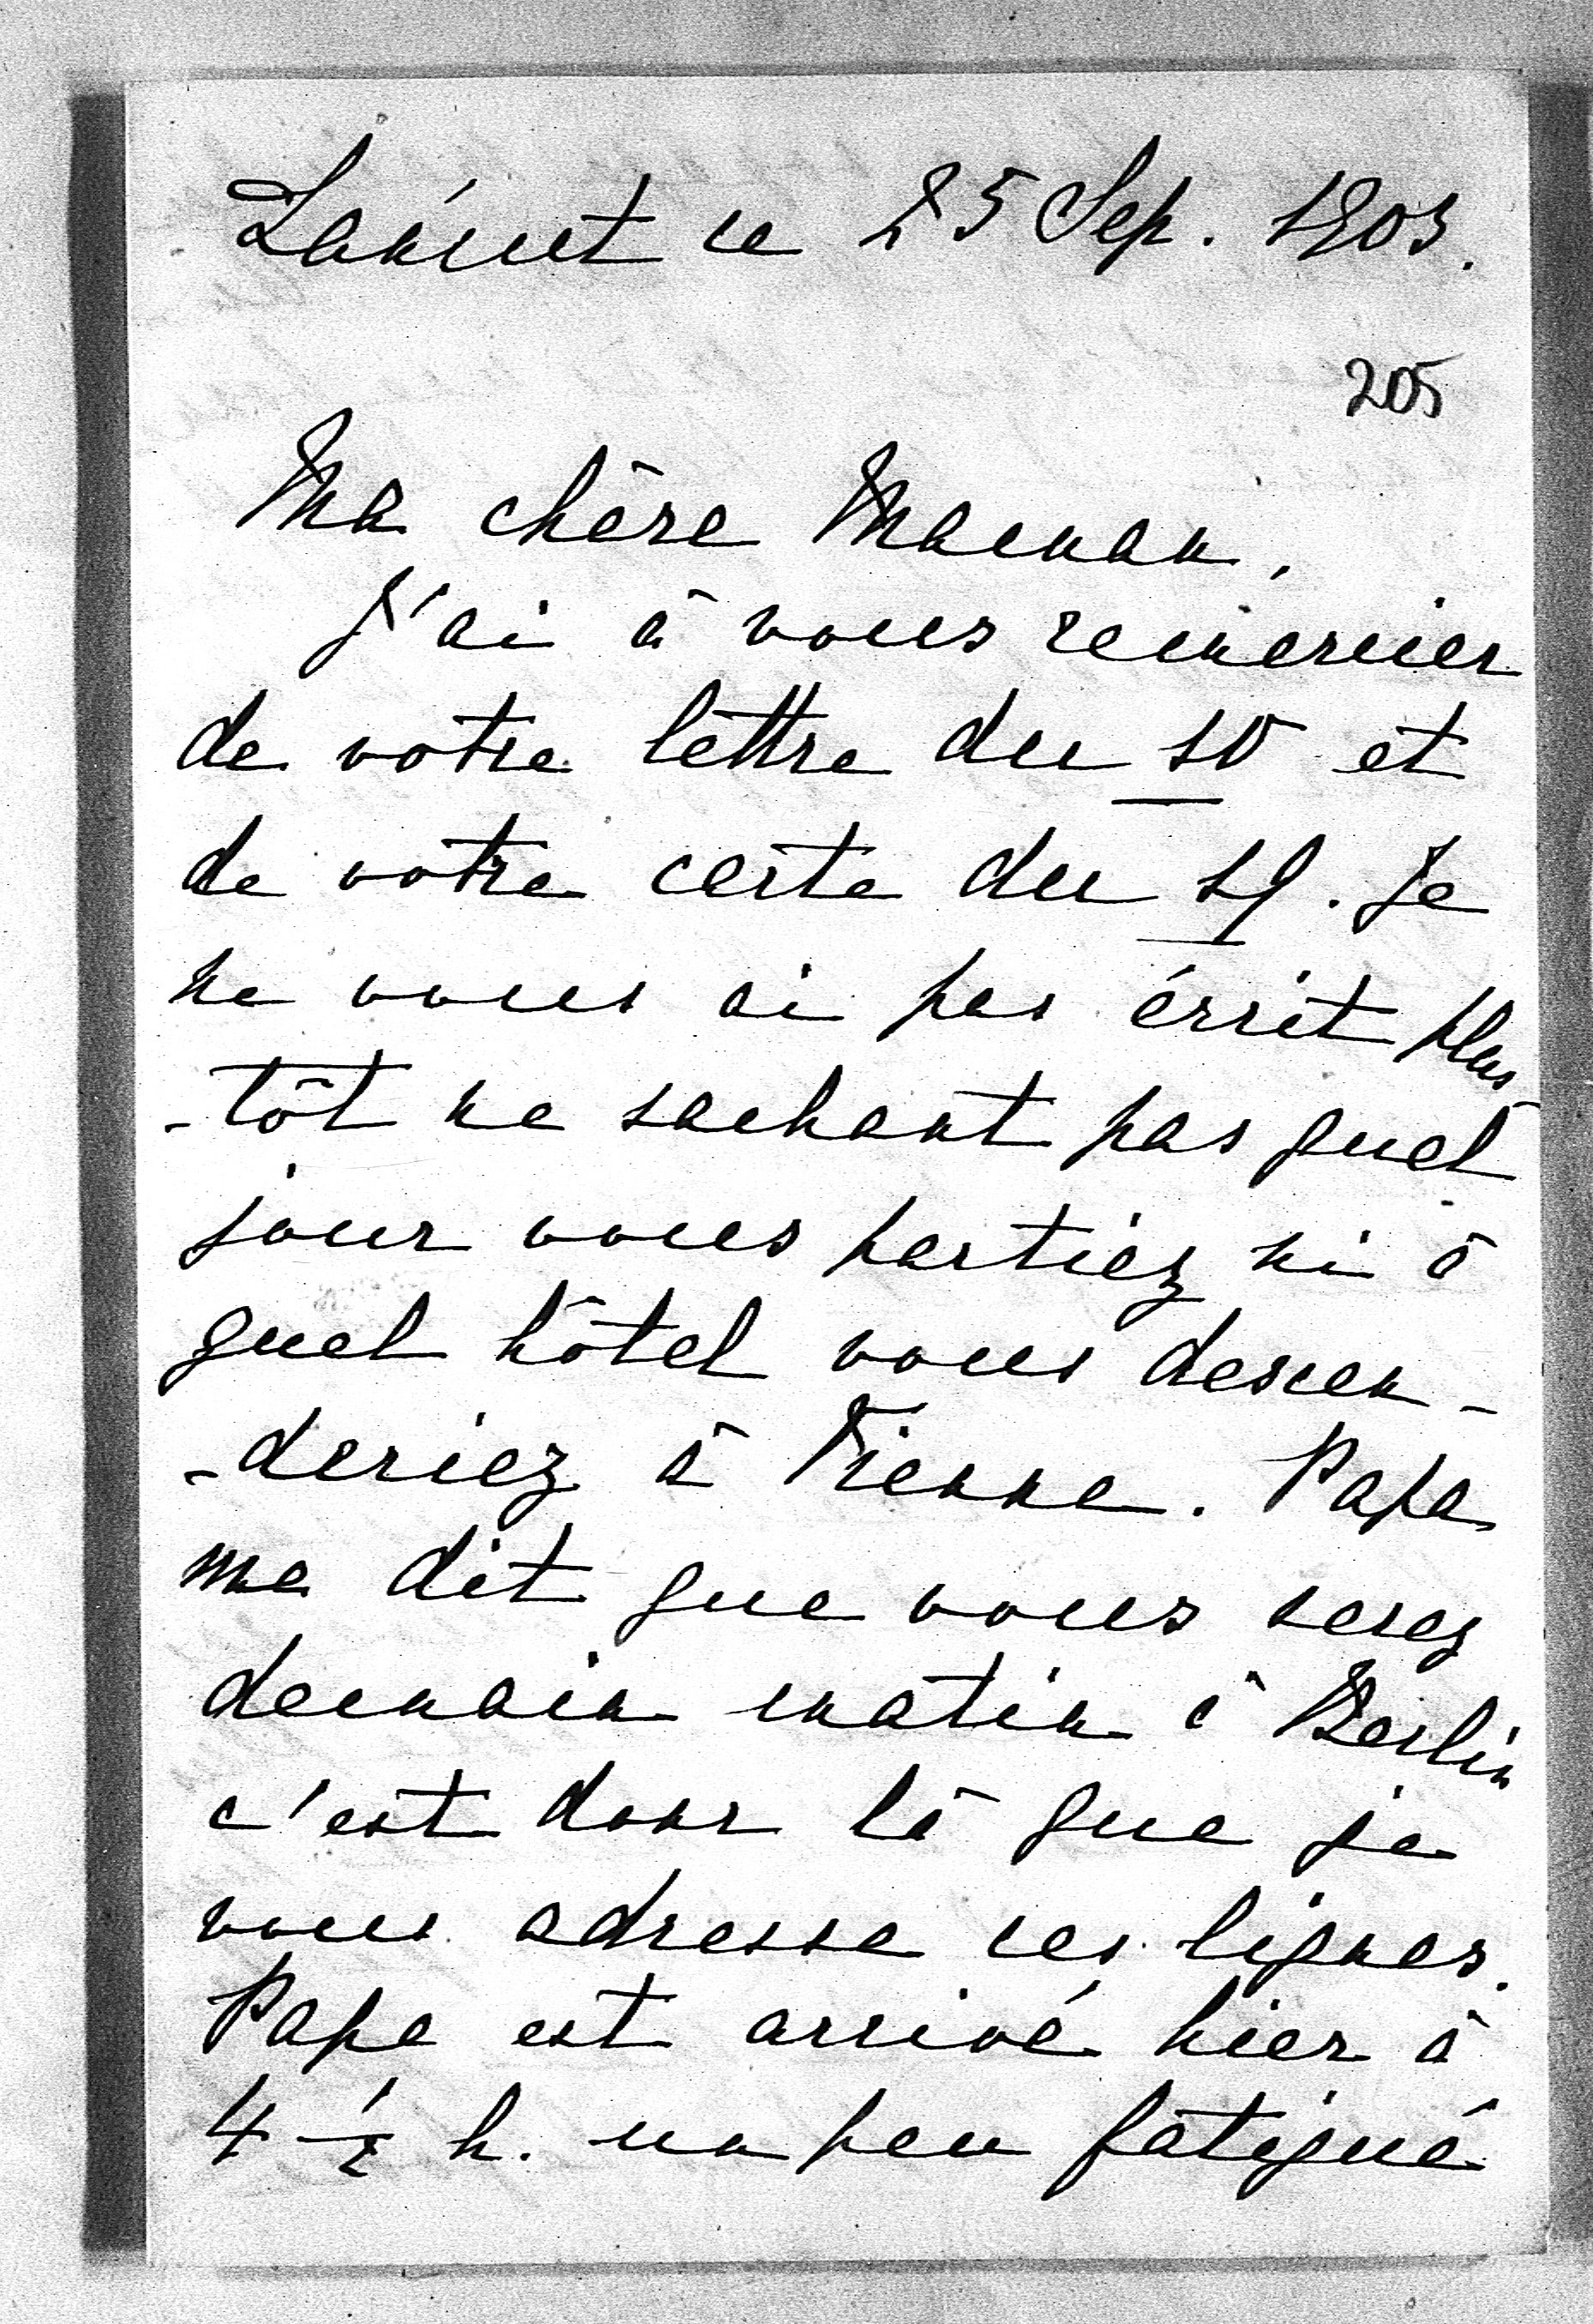 Łańcut ce 25 Sep. 1903.
205
Ma chère Maman,
J'ai à vous remercier
de votre lettre du 10 et
de votre carte du 19. Je
ne vous ai pas écrit plus
-tôt ne sachant pas quel
jour vous partiez ni à
quel hôtel vous descen-
-deriez à Vienne. Papa
me dit que vous serez
demain matin à Berlin
c'est donc là que je
vous adresse ces lignes.
Papa est arrivé hier à
4 1/2 h. un peu fatigué